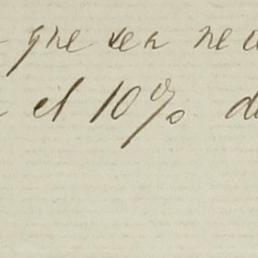 que sea ne
el 10% d